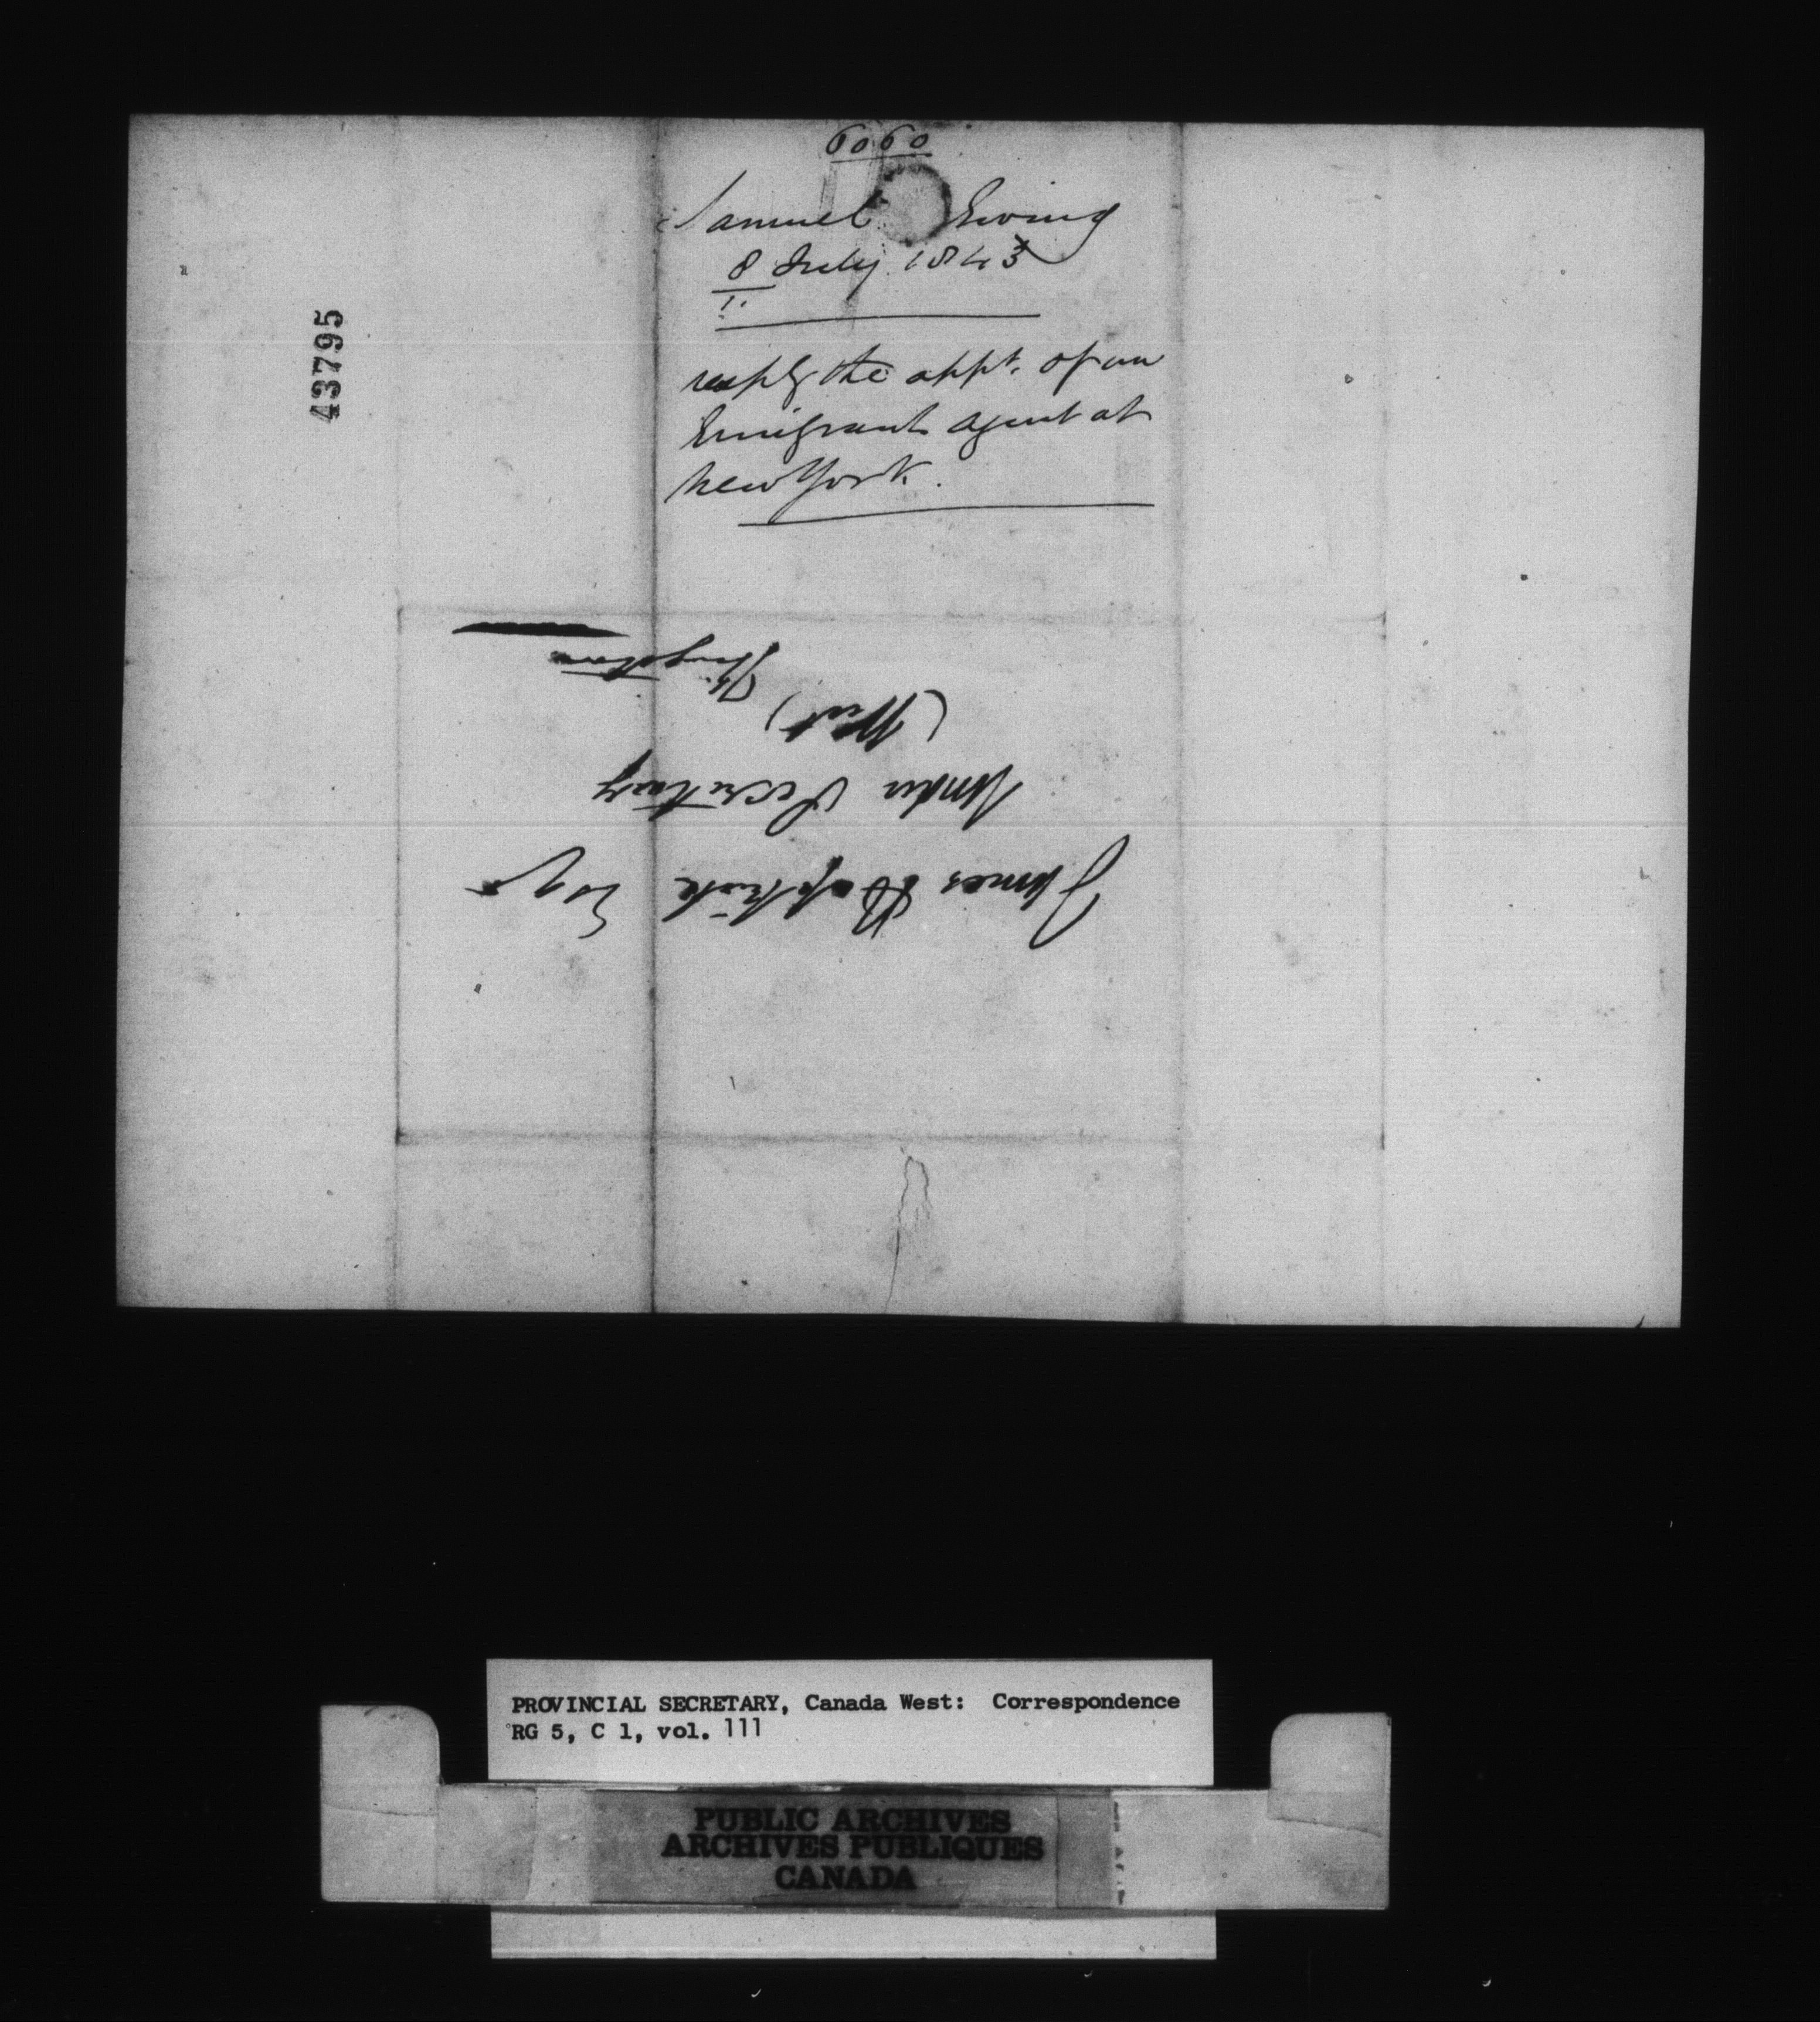 6060
Samuel Ewing
8 July 1843
1.
resptg the appt. of an
Emigrant Agent at
New York.
43795
James Hopkirk Esqr
Under Secretary
(West)
Kingston
PROVINCIAL SECRETARY, Canada West: Correspondence
RG 5, C 1, vol. 111
PUBLIC ARCHIVES
ARCHIVES PUBLIQUES
CANADA